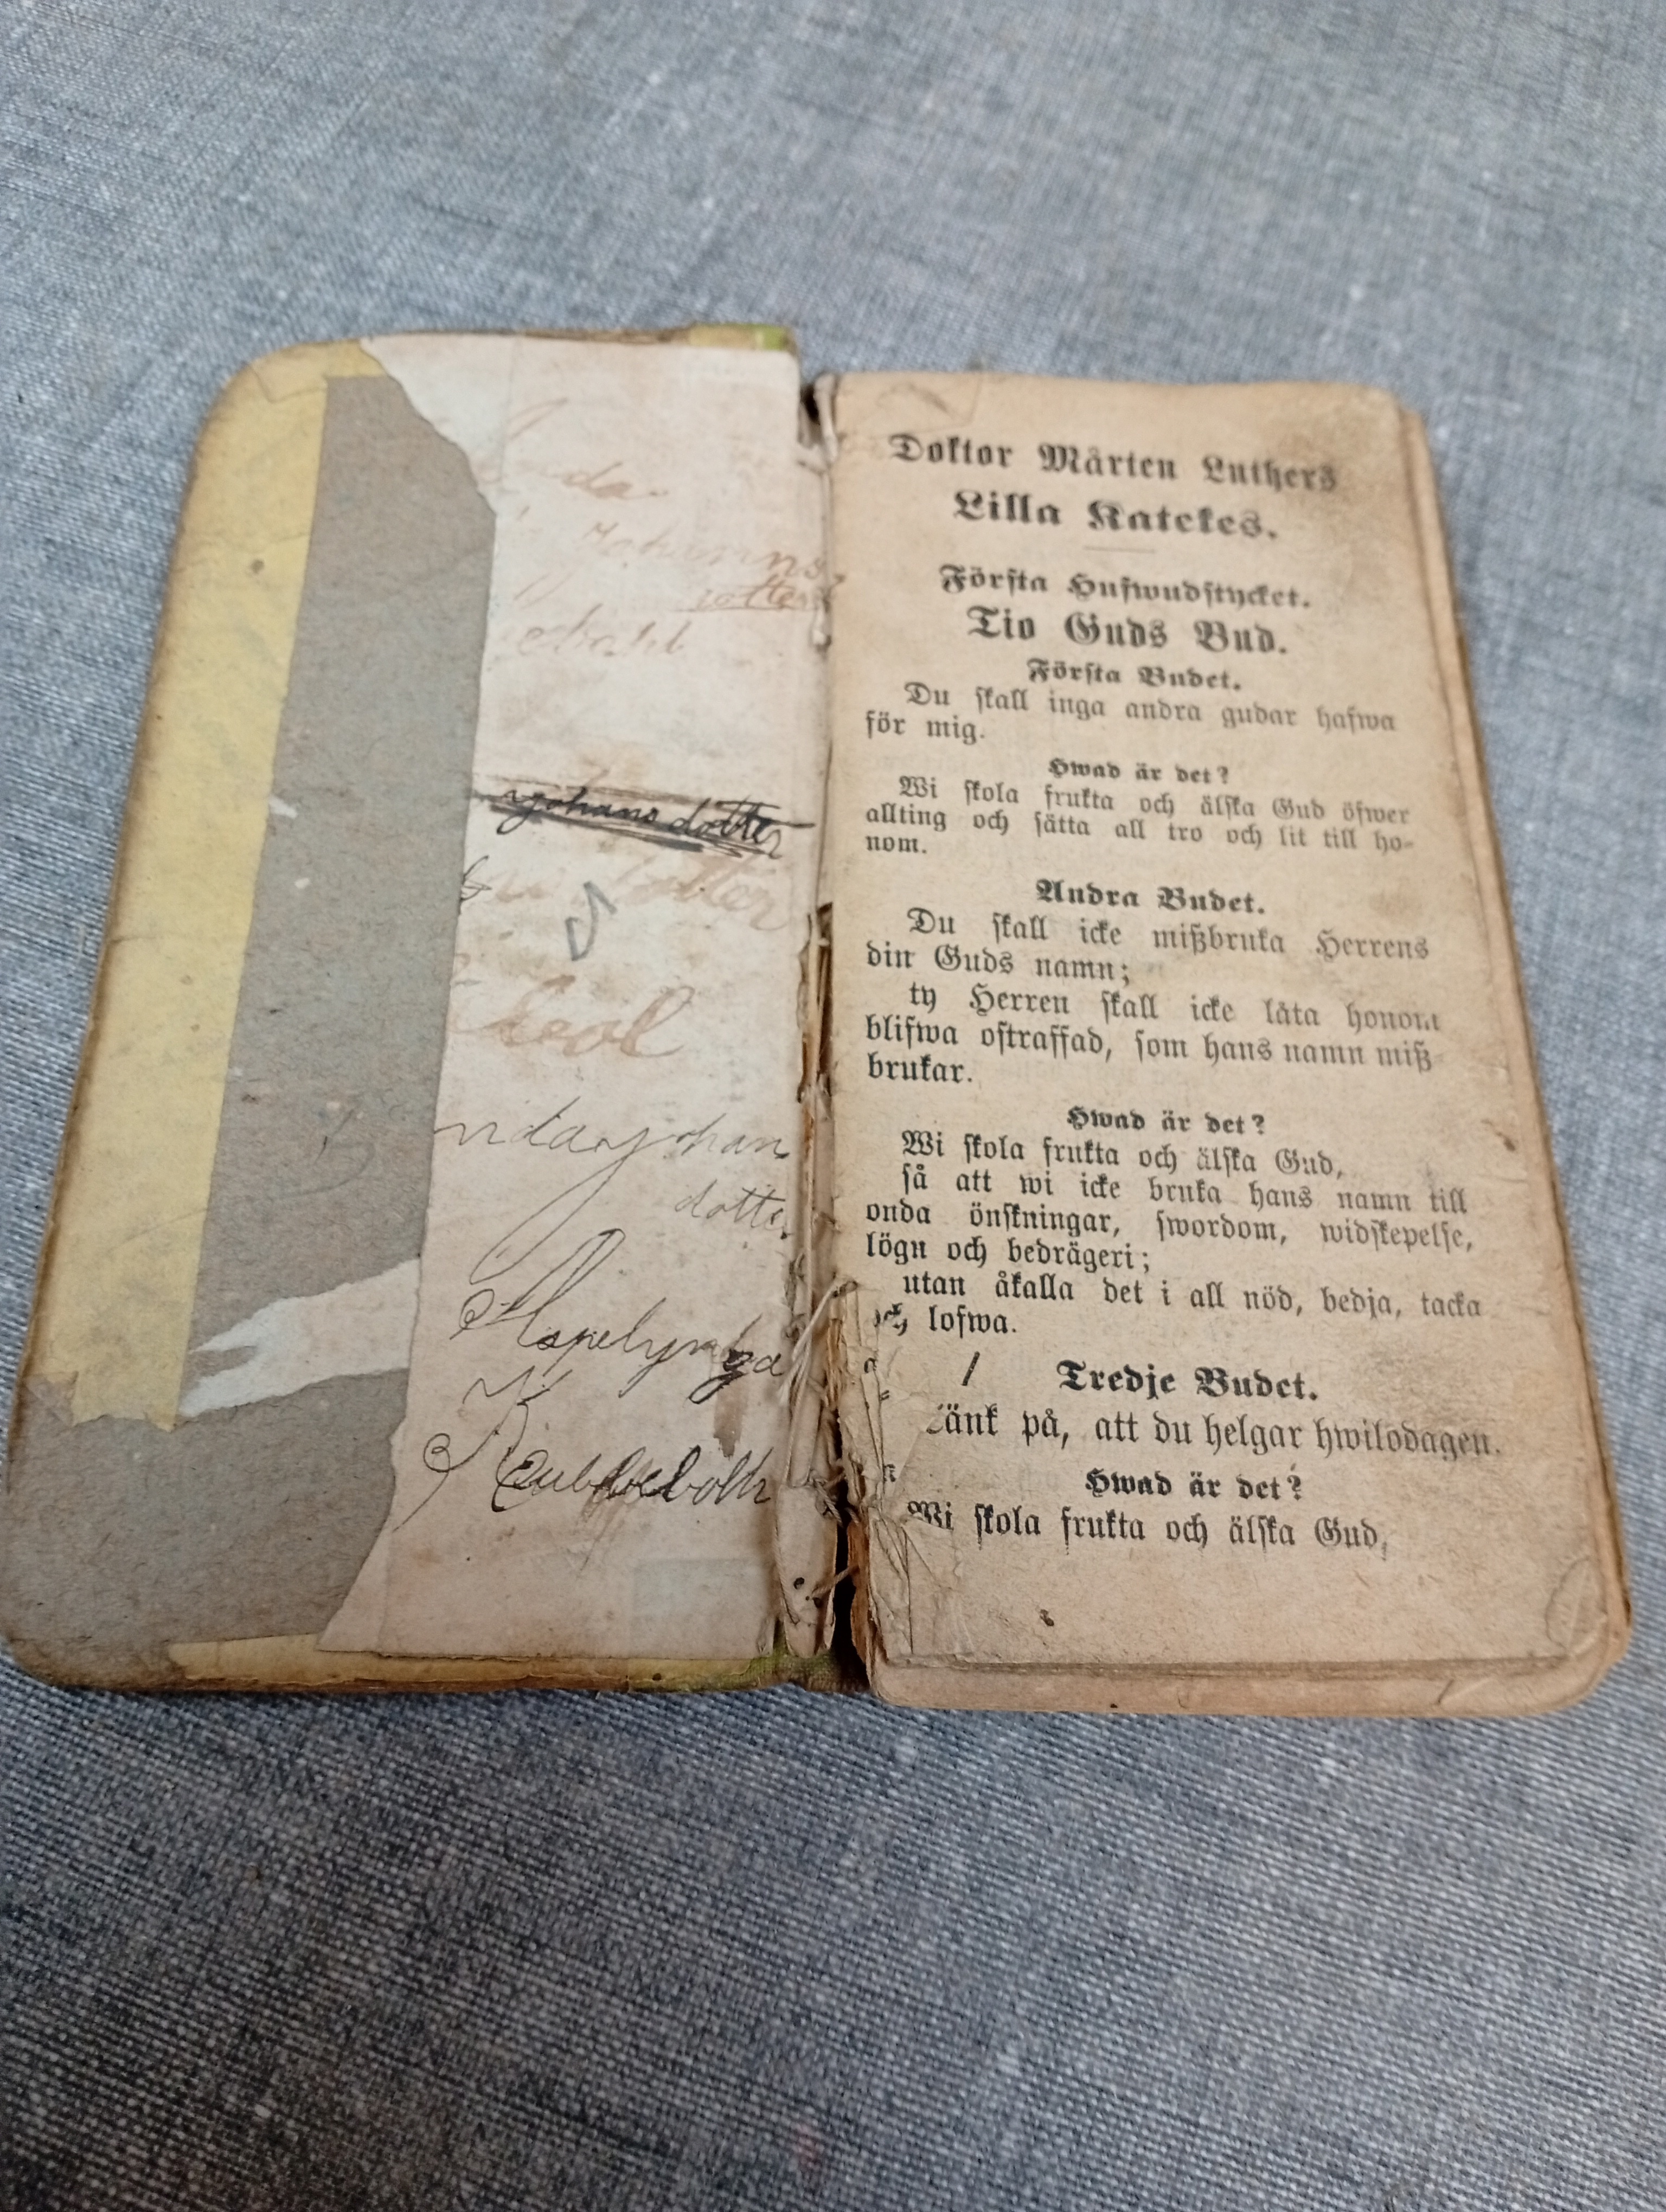 nda
Johanns
dotter
Johansdotter
dotter
nda Johan
dotte
Doktor Mårten Luthers
Lilla Katekes.
Första Hufwudstycket.
Tio Guds Bud.
Första Budet.
Du skall inga andra gudar hafwa
för mig.
Hwad är det?
Wi skola frukta och älska Gud öfwer
allting och sätta all tro och lit till ho-
nom.
Andra Budet.
Du skall icke mißbruka Herrens
din Guds namn;
ty Herren skall icke låta honom
blifwa ostraffad, som hans namn miß-
brukar.
Hwad är det?
Wi skola frukta och älska Gud,
så att wi icke bruka hans namn till
onda önskningar, swordom, widskepelse,
lögn och bedrägeri;
utan åkalla det i all nöd, bedja, tacka
och lofwa.
Tredje Budet.
Tänk på, att du helgar hwilodagen.
Hwad är det?
Wi skola frukta och älska Gud,